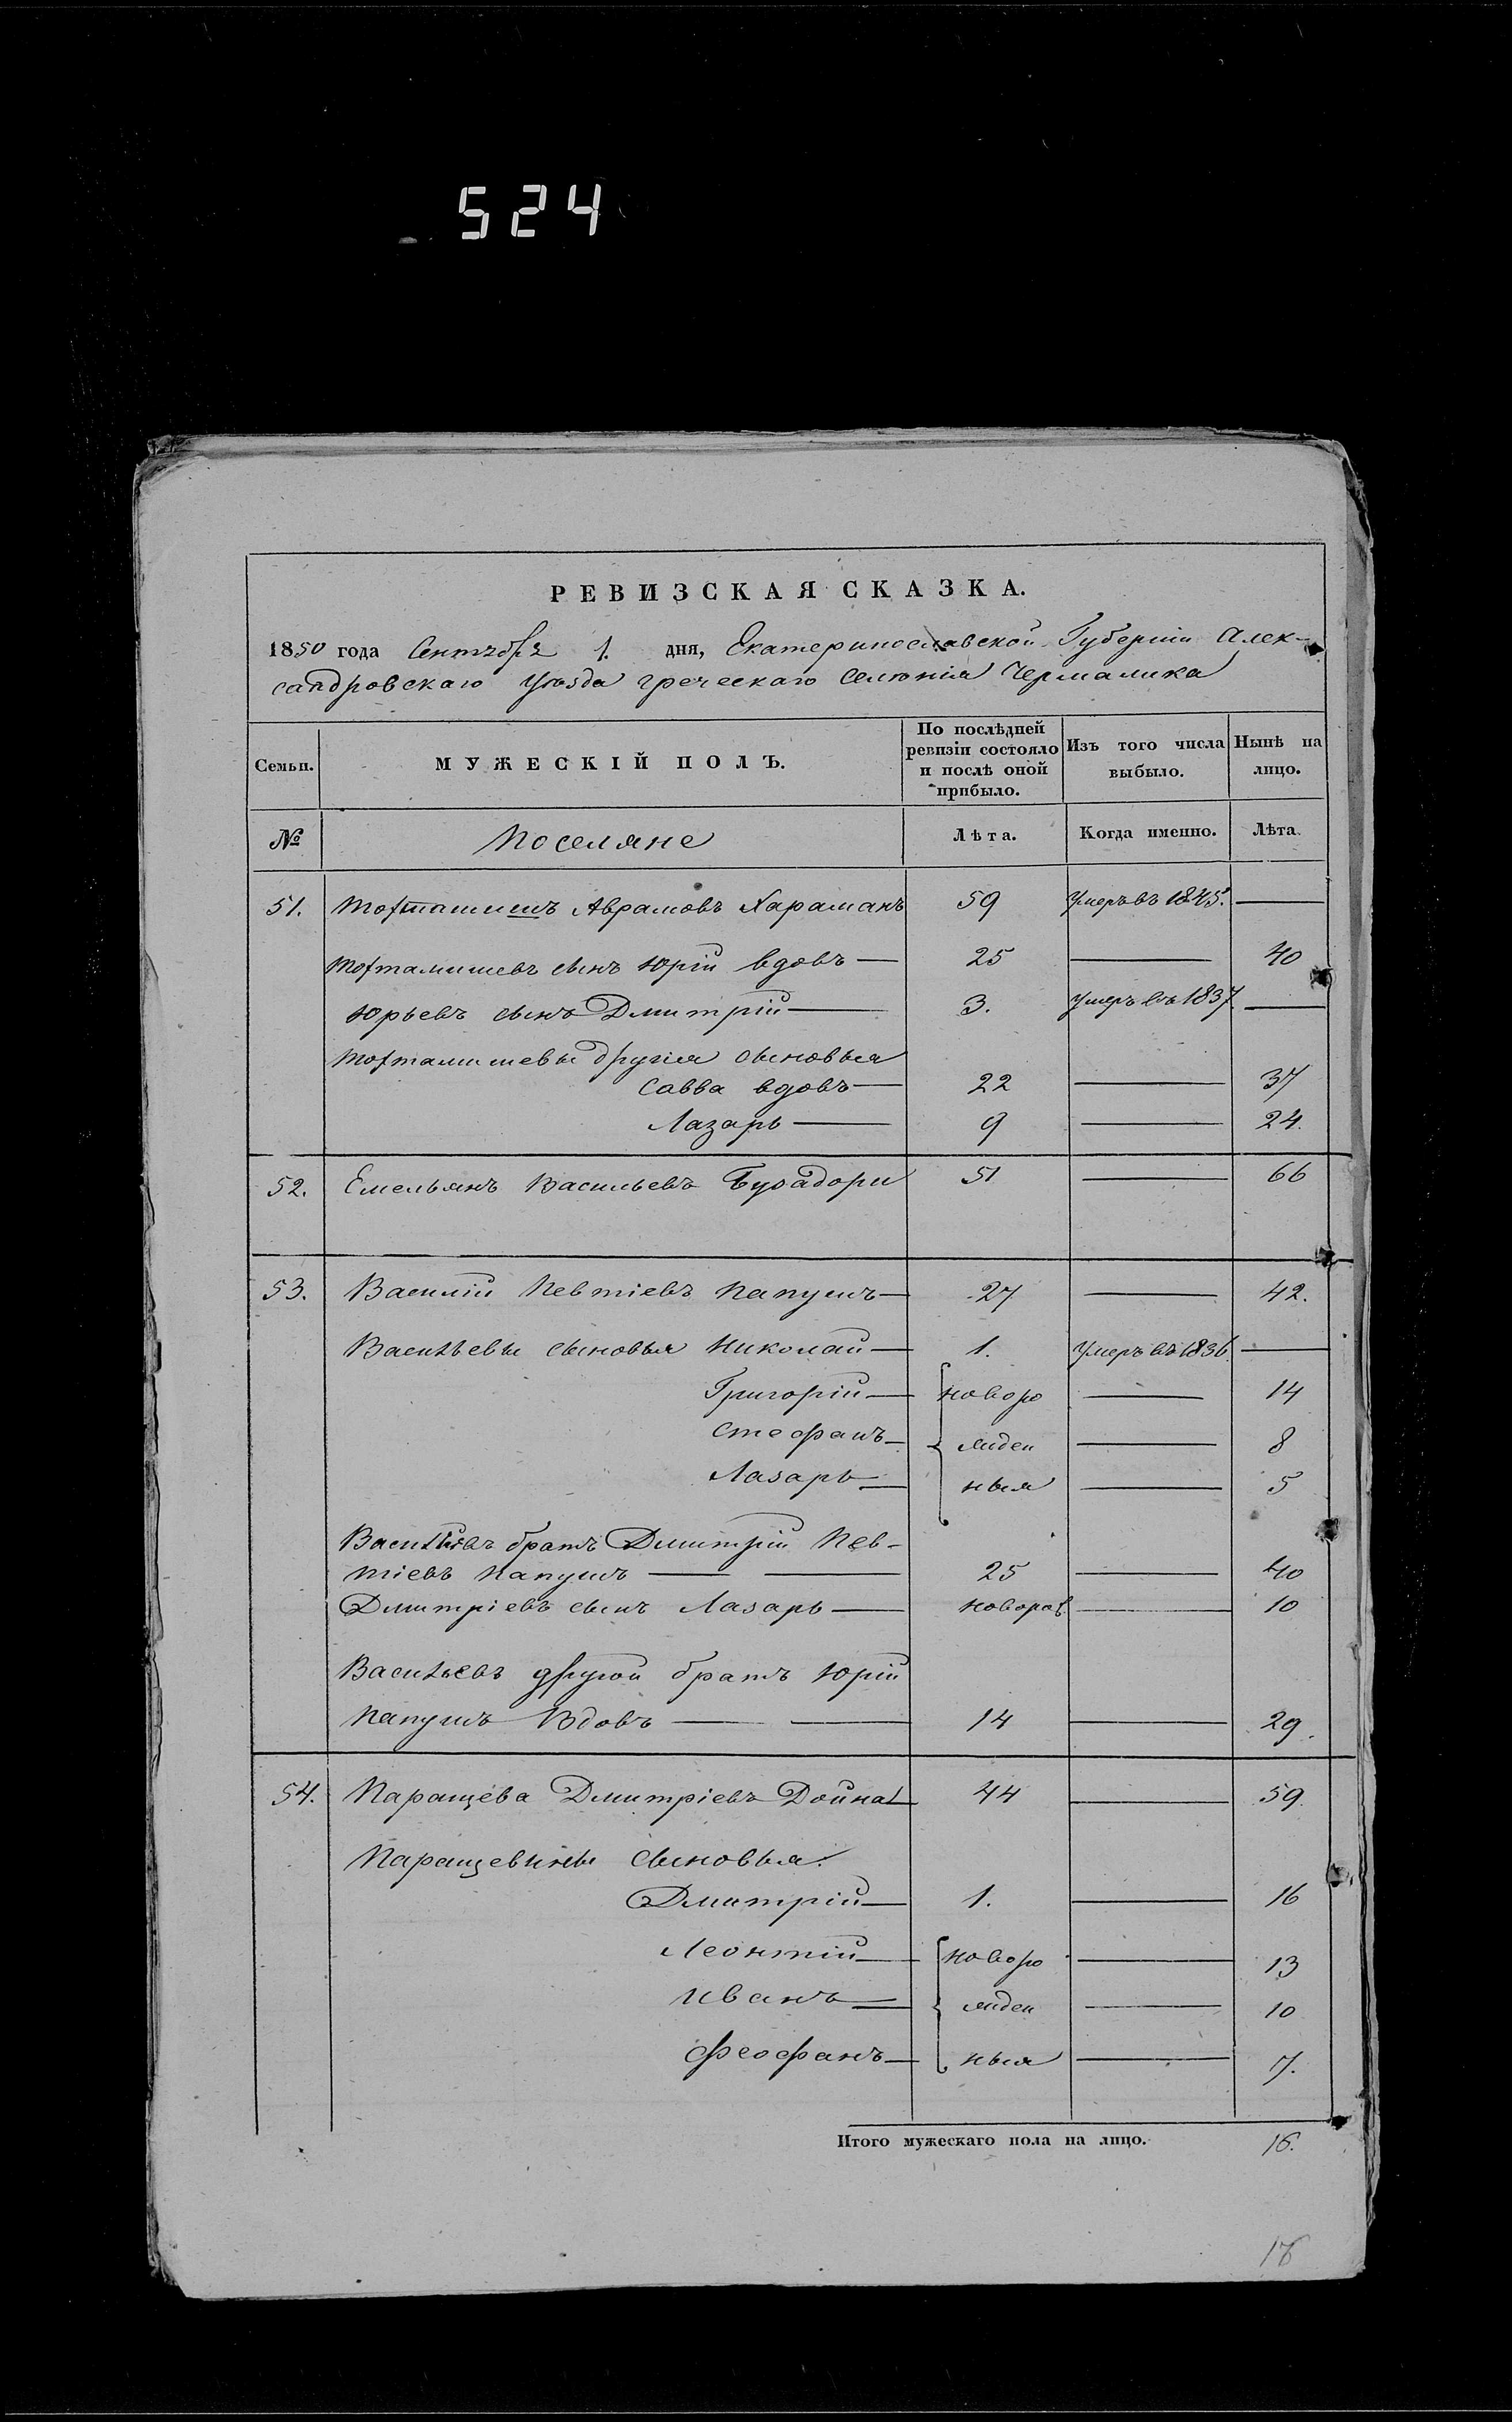 524
РЕВИЗСКАЯ СКАЗКА.
1850 года Сентября 1. дня, Екатеринославской Губерніи Алек-
сандровскаго Уѣзда греческаго Селенія Чермалика
Семьи. МУЖЕСКІЙ ПОЛЪ. По послѣдней ревизіи состояло и послѣ оной прибыло. Изъ того числа выбыло. Нынѣ на лицо.
№ Поселяне Лѣта. Когда именно. Лѣта.
51. Тохтамишъ Аврамовъ Хараманъ 59 Умеръ въ 1845. —
Тохтамишевъ сынъ Юрій вдовъ — 25 — 40
Юрьевъ сынъ Дмитрій — 3. Умеръ въ 1837 —
Тохтамишевы другія сыновья
Савва вдовъ — 22 — 37
Лазарь — 9 — 24.
52. Емельянъ Васильевъ 51 — 66
53. Василій Певтіевъ Папушъ — 27 — 42.
Васильевы сыновья Николай — 1. Умеръ въ 1836. —
Григорій — новоро — 14
Стефанъ — жден — 8
Лазарь — ныя — 5
Васильевъ братъ Дмитрій Пев-
тіевъ Папушъ — — 25 — 40
Дмитріевъ сынъ Лазарь — новорож. — 10
Васильевъ другой братъ Юрій
Папушъ Вдовъ — — 14 — 29.
54. Паращева Дмитріевъ Дойна 44 — 59.
Паращевины сыновья.
Дмитрій — 1. — 16
Леонтій — новоро — 13
Иванъ — жден — 10
Феофанъ — ныя — 7.
Итого мужескаго пола на лицо. 16.